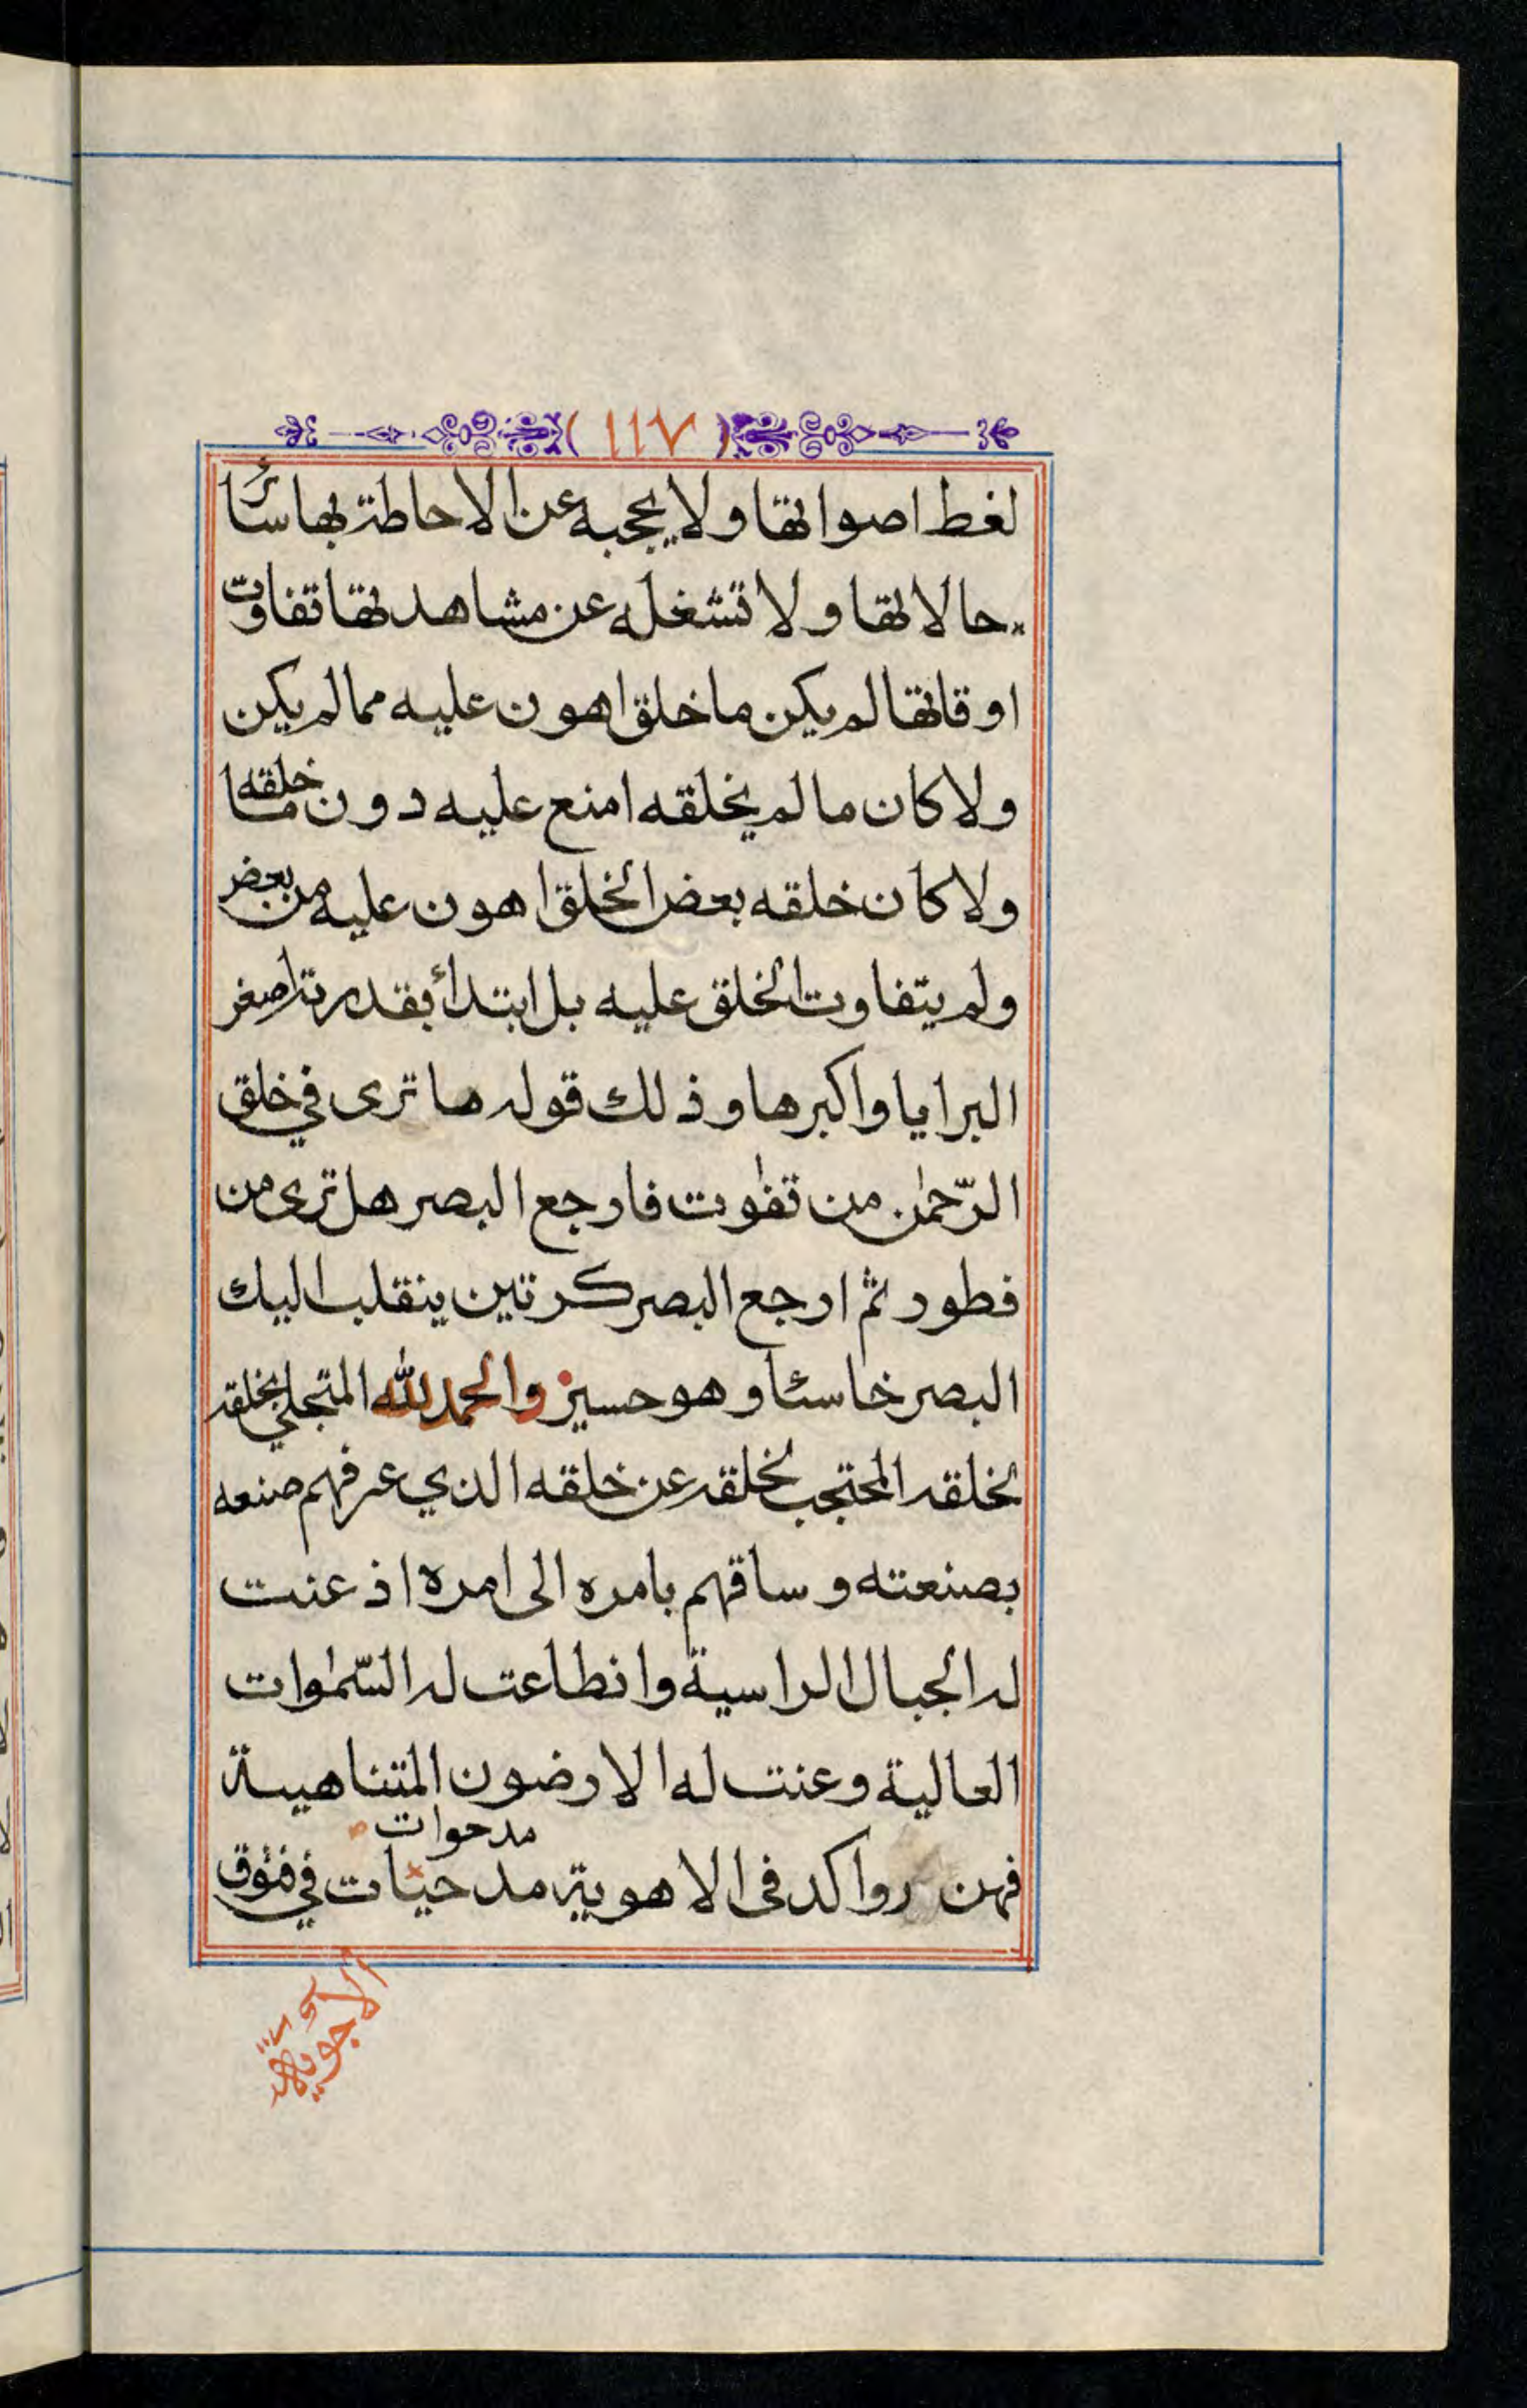 (١١٧)
لغط اصواتها ولا يحجبه عن الاحاطة بها سائر
حالاتها ولا تشغله عن مشاهدتها تفاوت
اوقاتها لم يكن ما خلق اهون عليه مما لم يكن
ولا كان ما لم يخلقه امنع عليه دون ما خلقه
ولا كان خلقه بعض الخلق اهون عليه من بعض
ولم يتفاوت الخلق عليه بل ابتدأ بقدرته اصغر
البرايا واكبرها وذلك قوله ما ترى في خلق
الرّحمٰن من تفٰوت فارجع البصر هل ترى من
فطور ثم ارجع البصر كرتين ينقلب اليك
البصر خاسئا وهو حسيز والحمد لله المتجلي بخلقه
لخلقه المحتجب بخلقه عن خلقه الذي عرفهم صنعه
بصنعته وساقهم بامره الى امره اذ عنت
له الجبال الراسية وانطاعت له السّمٰوات
العالية وعنت له الارضون المتناهية
مدحوات
فهن رواكد فى الاهوية مدحيات في فوق
الاجوية